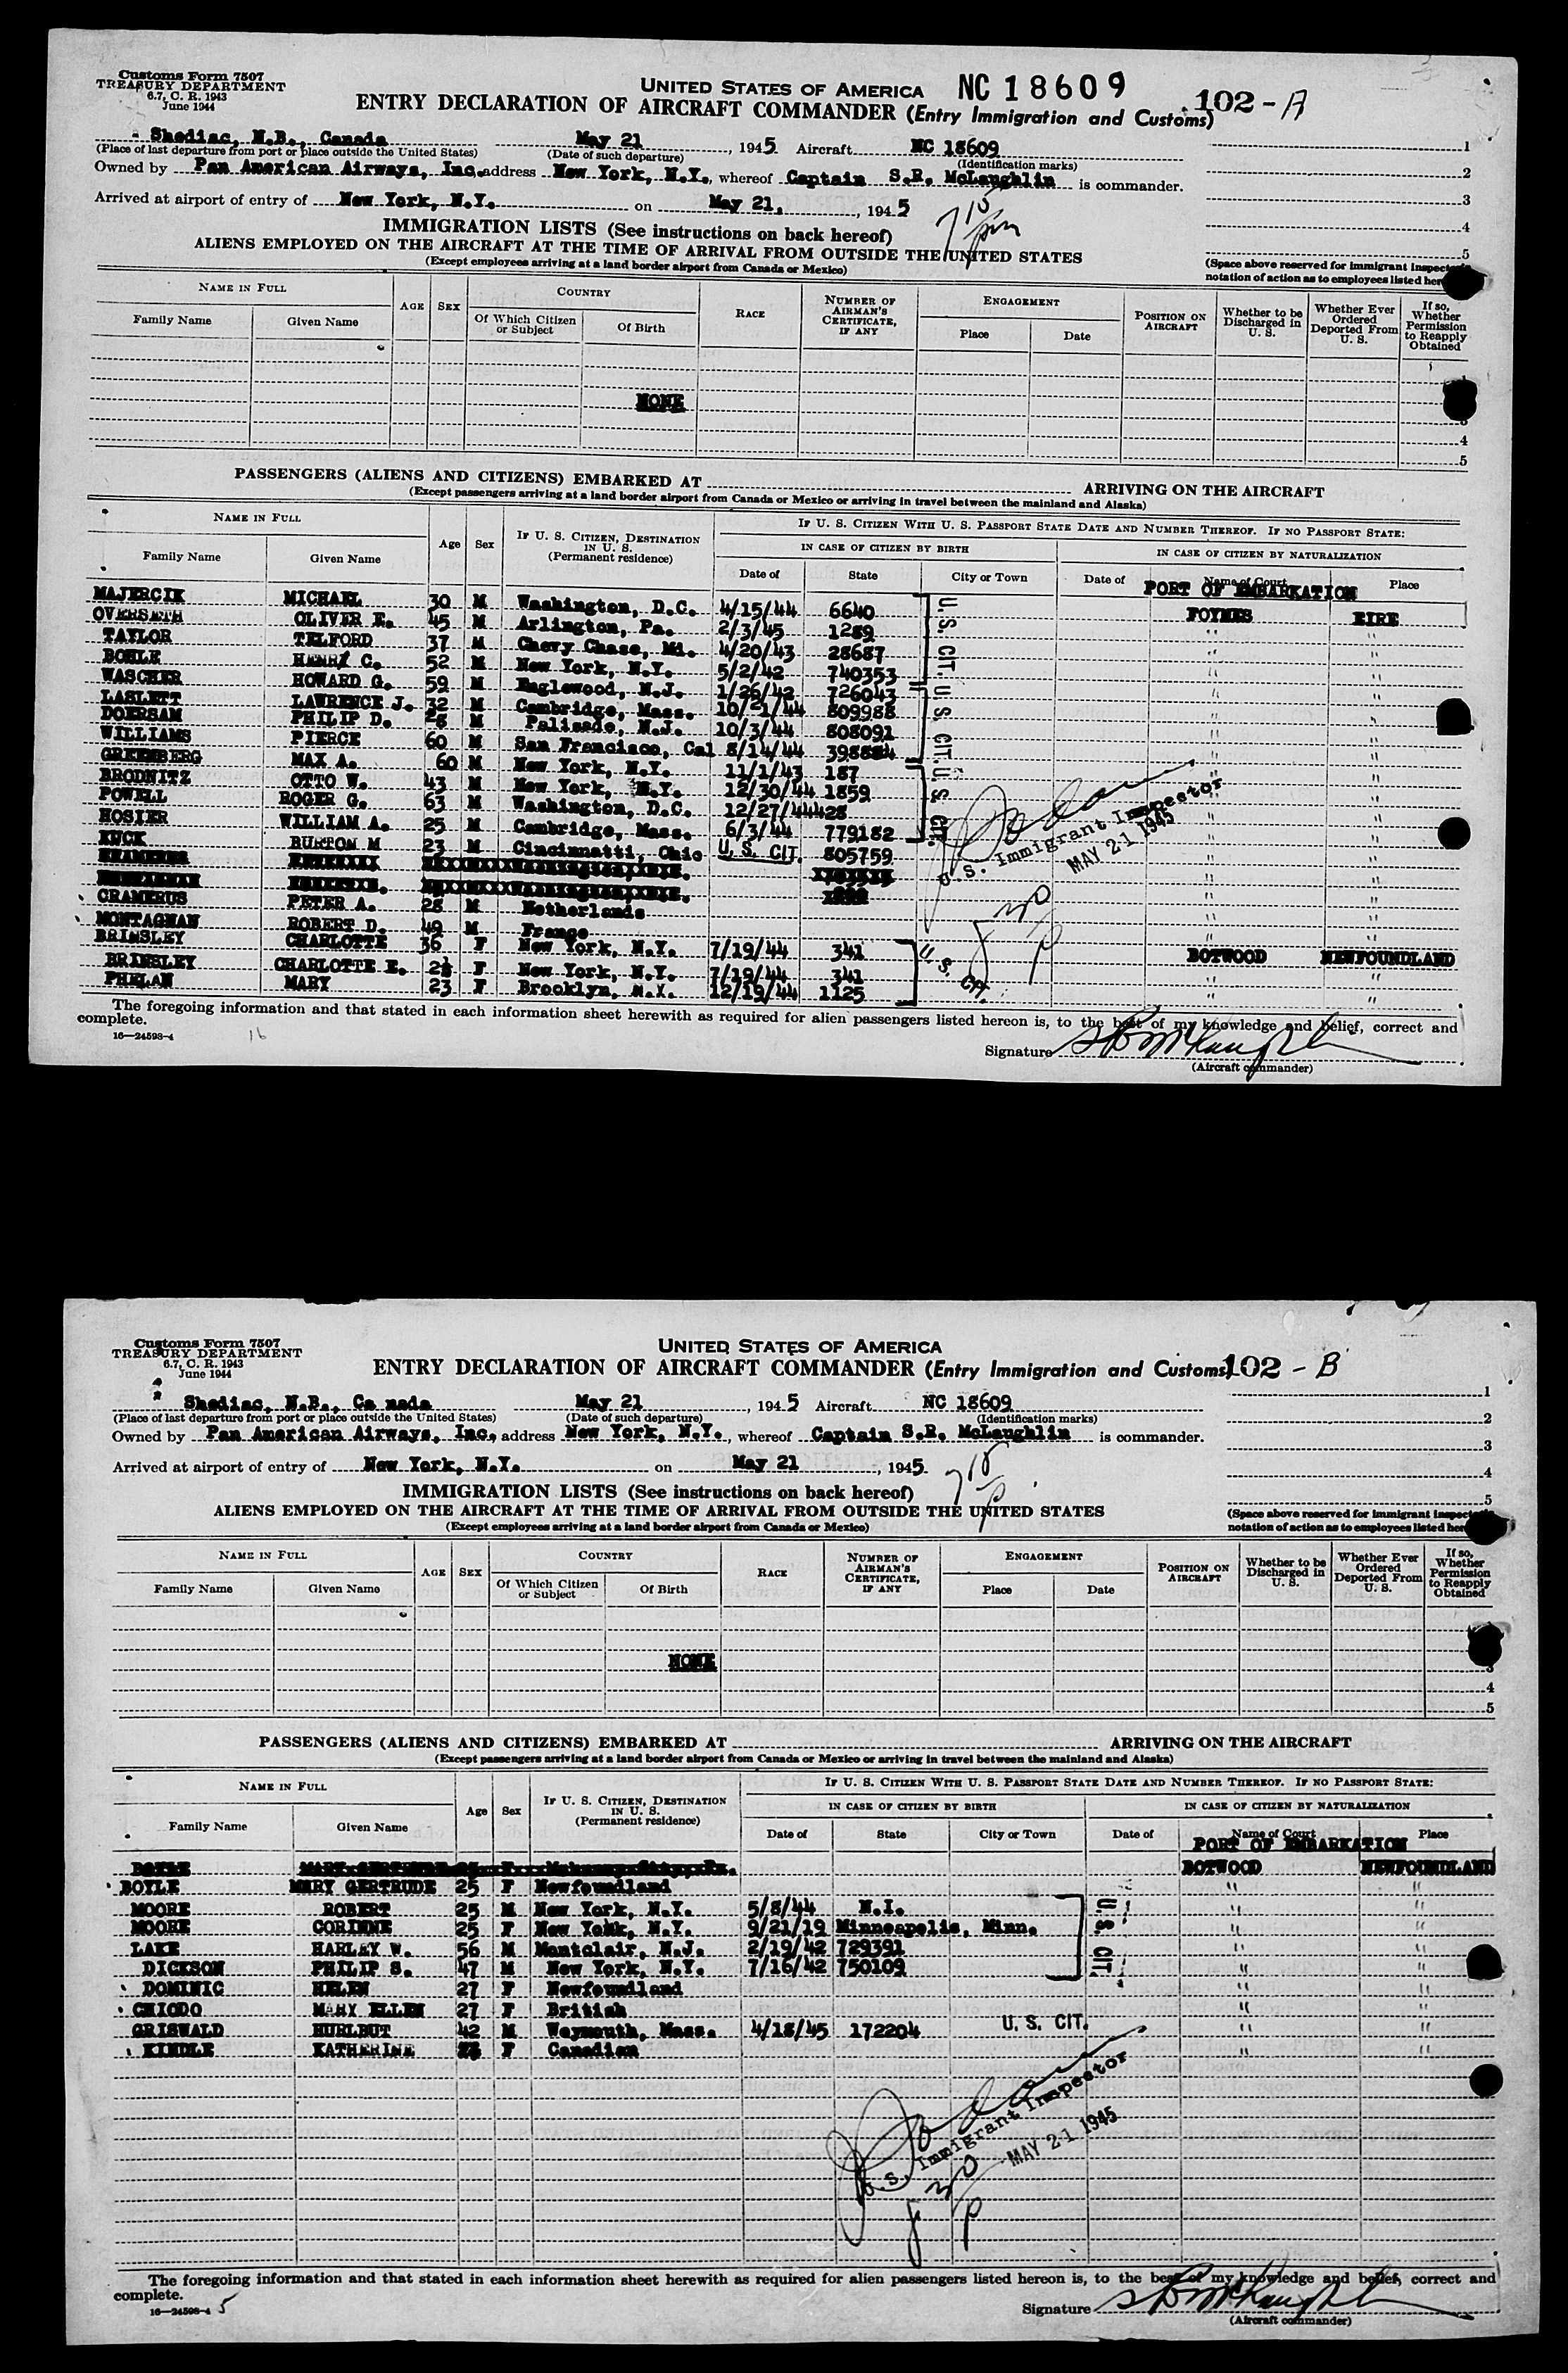 Customs Form 7507
TREASURY DEPARTMENT
6.7, C. R. 1943
June 1944
UNITED STATES OF AMERICA NC 18609
ENTRY DECLARATION OF AIRCRAFT COMMANDER (Entry Immigration and Customs) 102 - A
Shediac, N.B., Canada May 21, 1945 Aircraft NC 18609
(Place of last departure from port or place outside the United States) (Date of such departure) (Identification marks)
Owned by Pan American Airways, Inc. address New York, N.Y., whereof Captain S.R. McLaughlin is commander.
Arrived at airport of entry of New York, N.Y. on May 21, 1945 7 15 pm
1
2
3
4
5
IMMIGRATION LISTS (See instructions on back hereof)
ALIENS EMPLOYED ON THE AIRCRAFT AT THE TIME OF ARRIVAL FROM OUTSIDE THE UNITED STATES
(Except employees arriving at a land border airport from Canada or Mexico)
(Space above reserved for immigrant
notation of action as to employees listed
NAME IN FULL AGE SEX COUNTRY RACE NUMBER OF AIRMAN'S CERTIFICATE, IF ANY ENGAGEMENT POSITION ON AIRCRAFT Whether to be Discharged in U. S. Whether Ever Ordered Deported From U. S. If so, Whether Permission to Reapply Obtained
Family Name Given Name Of Which Citizen or Subject Of Birth Place Date
NONE
4
5
PASSENGERS (ALIENS AND CITIZENS) EMBARKED AT ARRIVING ON THE AIRCRAFT
(Except passengers arriving at a land border airport from Canada or Mexico or arriving in travel between the mainland and Alaska)
NAME IN FULL Age Sex IF U. S. CITIZEN, DESTINATION IN U. S. (Permanent residence) IF U. S. CITIZEN WITH U. S. PASSPORT STATE DATE AND NUMBER THEREOF. IF NO PASSPORT STATE:
IN CASE OF CITIZEN BY BIRTH IN CASE OF CITIZEN BY NATURALIZATION
Family Name Given Name Date of State City or Town Date of Name of Court Place
PORT OF EMBARKATION
MAJERCIK MICHAEL 30 M Washington, D.C. 4/15/44 6640 U. S. CIT. FOYNES EIRE
OVERSETH OLIVER E. 45 M Arlington, Pa. 2/3/45 1289 " "
TAYLOR TELFORD 37 M Chevy Chase, Md. 4/20/43 28687 " "
BOHLE HENRY C. 52 M New York, N.Y. 5/2/42 740353 " "
WASCHER HOWARD G. 59 M Englewood, N.J. 1/26/42 726043 " "
LASLETT LAWRENCE J. 32 M Cambridge, Mass. 10/21/44 809988 U. S. CIT. " "
DOERSAM PHILIP D. 28 M Palisade, N.J. 10/3/44 808091 " "
WILLIAMS PIERCE 60 M San Francisco, Cal 8/14/44 398884 " "
GREENBERG MAX A. 60 M New York, N.Y. 11/1/43 187 U. S. CIT. " "
BRODNITZ OTTO W. 43 M New York, N.Y. 12/30/44 1859 " "
POWELL ROGER G. 63 M Washington, D.C. 12/27/44 428 " "
HOSIER WILLIAM A. 25 M Cambridge, Mass. 6/3/44 779182 " "
KUCK BURTON M 23 M Cincinnatti, Ohio U. S. CIT. 805759 " "
CRAMERUS PETER A. 28 M Netherlands " "
MONTAGNAN ROBERT D. 49 M France " "
BRINSLEY CHARLOTTE 36 F New York, N.Y. 7/19/44 341 U. S. CIT. BOTWOOD NEWFOUNDLAND
BRINSLEY CHARLOTTE E. 2½ F New York, N.Y. 7/19/44 341 " "
PHELAN MARY 23 F Brooklyn, N.Y. 12/19/44 1125 " "
U. S. Immigrant Inspector
MAY 21 1945
The foregoing information and that stated in each information sheet herewith as required for alien passengers listed hereon is, to the best of my knowledge and belief, correct and
complete.
16—24593-4 16
Signature S R McLaughlin
(Aircraft commander)
Customs Form 7507
TREASURY DEPARTMENT
6.7, C. R. 1943
June 1944
UNITED STATES OF AMERICA
ENTRY DECLARATION OF AIRCRAFT COMMANDER (Entry Immigration and Customs) 102 - B
Shediac, N.B., Ca nada May 21, 1945 Aircraft NC 18609
(Place of last departure from port or place outside the United States) (Date of such departure) (Identification marks)
Owned by Pan American Airways, Inc. address New York, N.Y., whereof Captain S.R. McLaughlin is commander.
Arrived at airport of entry of New York, N.Y. on May 21, 1945. 7 15 p
1
2
3
4
5
IMMIGRATION LISTS (See instructions on back hereof)
ALIENS EMPLOYED ON THE AIRCRAFT AT THE TIME OF ARRIVAL FROM OUTSIDE THE UNITED STATES
(Except employees arriving at a land border airport from Canada or Mexico)
(Space above reserved for immigrant
notation of action as to employees listed
NAME IN FULL AGE SEX COUNTRY RACE NUMBER OF AIRMAN'S CERTIFICATE, IF ANY ENGAGEMENT POSITION ON AIRCRAFT Whether to be Discharged in U. S. Whether Ever Ordered Deported From U. S. If so, Whether Permission to Reapply Obtained
Family Name Given Name Of Which Citizen or Subject Of Birth Place Date
NONE
3
4
5
PASSENGERS (ALIENS AND CITIZENS) EMBARKED AT ARRIVING ON THE AIRCRAFT
(Except passengers arriving at a land border airport from Canada or Mexico or arriving in travel between the mainland and Alaska)
NAME IN FULL Age Sex IF U. S. CITIZEN, DESTINATION IN U. S. (Permanent residence) IF U. S. CITIZEN WITH U. S. PASSPORT STATE DATE AND NUMBER THEREOF. IF NO PASSPORT STATE:
IN CASE OF CITIZEN BY BIRTH IN CASE OF CITIZEN BY NATURALIZATION
Family Name Given Name Date of State City or Town Date of Name of Court Place
PORT OF EMBARKATION
BOYLE MARY GERTRUDE BOTWOOD NEWFOUNDLAND
BOYLE MARY GERTRUDE 25 F Newfoundland " "
MOORE ROBERT 25 M New York, N.Y. 5/8/44 N.I. U. S. CIT. " "
MOORE CORINNE 25 F New York, N.Y. 9/21/19 Minneapolis, Minn. " "
LAKE HARLEY W. 56 M Montclair, N.J. 2/19/42 729391 " "
DICKSON PHILIP S. 47 M New York, N.Y. 7/16/42 750109 " "
DOMINIC HELEN 27 F Newfoundland " "
CHIODO MARY ELLEN 27 F British " "
GRISWALD HURLBUT 42 M Weymouth, Mass. 4/18/45 172204 U. S. CIT. " "
KINDLE KATHERINE F Canadian " "
U. S. Immigrant Inspector
MAY 21 1945
The foregoing information and that stated in each information sheet herewith as required for alien passengers listed hereon is, to the best of my knowledge and belief, correct and
complete.
16—24593-4 5
Signature S R McLaughlin
(Aircraft commander)